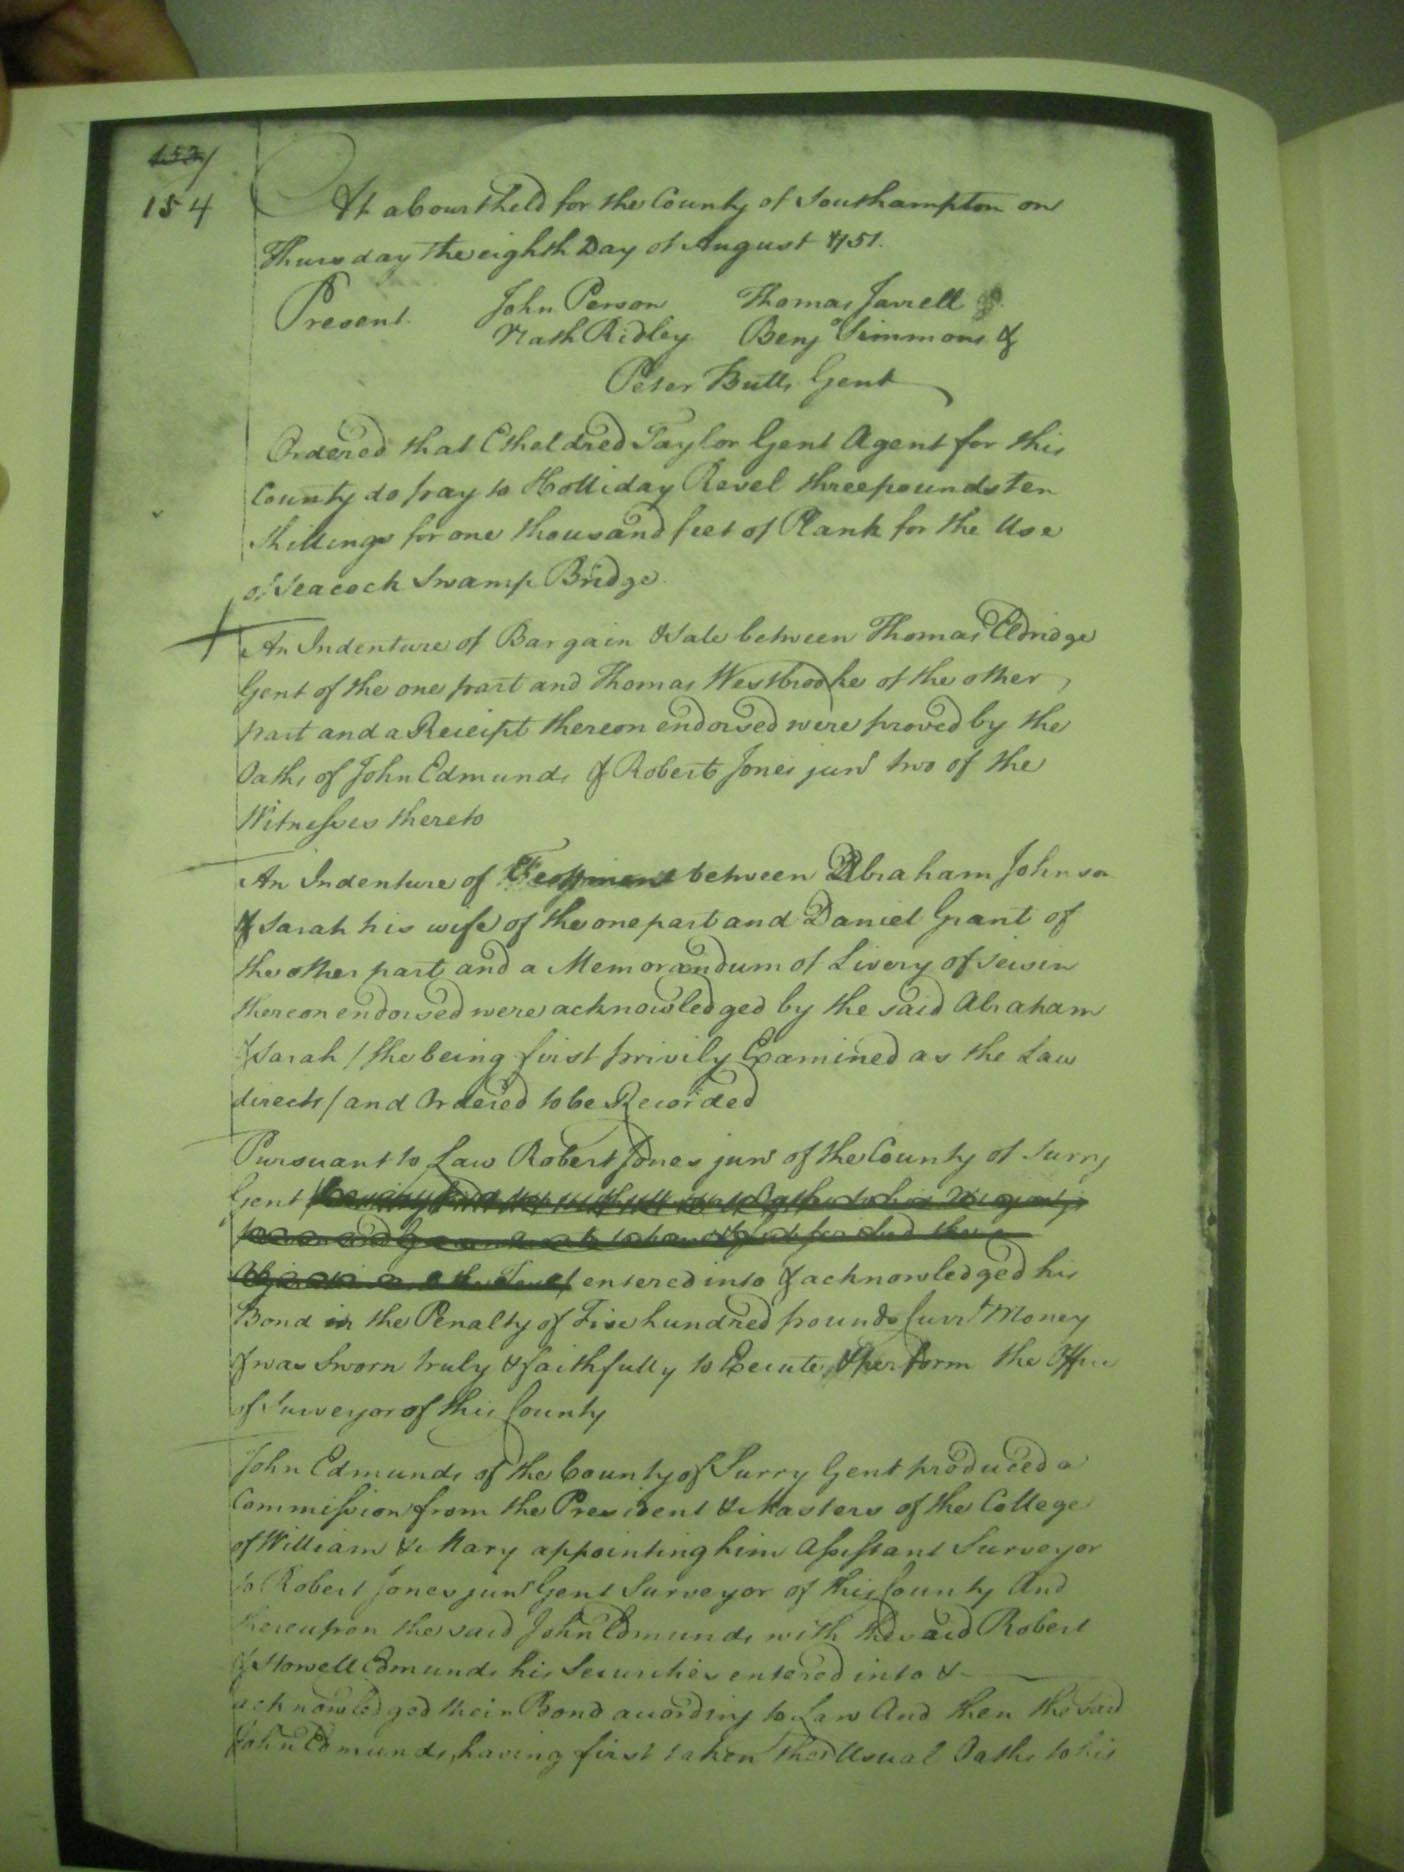 152/
154
At a Court held for the County of Southampton on
Thursday the eighth Day of August 1751.
Present. John Person Thomas Jarrell
Nath Ridley Benj^a Simmons &
Peter Butts Gent
Ordered that Etheldred Taylor Gent Agent for this
County do pay to Holliday Revel three pounds ten
shillings for one thousand feet of Plank for the Use
of Seacock Swamp Bridge
An Indenture of Bargain & Sale between Thomas Eldridge
Gent of the one part and Thomas Westbrooke of the other
part and a Receipt thereon endorsed were proved by the
Oaths of John Edmunds & Robert Jones jun^r two of the
Witnesses thereto
An Indenture of Feoffment between Abraham Johnson
& Sarah his wife of the one part and Daniel Grant of
the other part and a Memorandum of Livery of seisin
thereon endorsed were acknowledged by the said Abraham
& Sarah / she being first privily Examined as the Law
directs / and Ordered to be Recorded
Pursuant to Law Robert Jones jun^r of the County of Surry
Gent
entered into & acknowledged his
Bond in the Penalty of Five hundred pounds Curr^t Money
& was Sworn truly & faithfully to Execute & perform the Office
of Surveyor of this County
John Edmunds of the County of Surry Gent produced a
Commission from the President & Masters of the College
of William & Mary appointing him Assistant Surveyor
to Robert Jones jun^r Gent Surveyor of this County And
thereupon the said John Edmunds with the said Robert
& Howell Edmunds his Securities entered into &
acknowledged their Bond according to Law And then the said
John Edmunds, having first taken the Usual Oaths to his